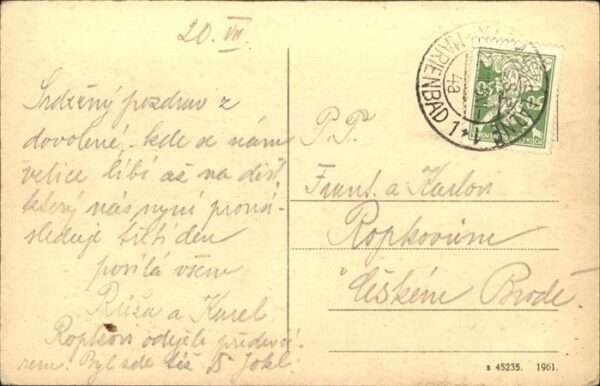 20. VII.
Srdečný pozdrav z
dovolené, kde se nám
velice líbí až na déšť
který nás nyní proná-
sleduje třetí den
posílá všem
Růža a Karel
Ropkovi odjeli předevčí-
rem. Byl zde též Jokl
P. T.
Frant. a Karlovi
Ropkovům
Českém Brodě
MARIENBAD 1
s 45235. 1961.